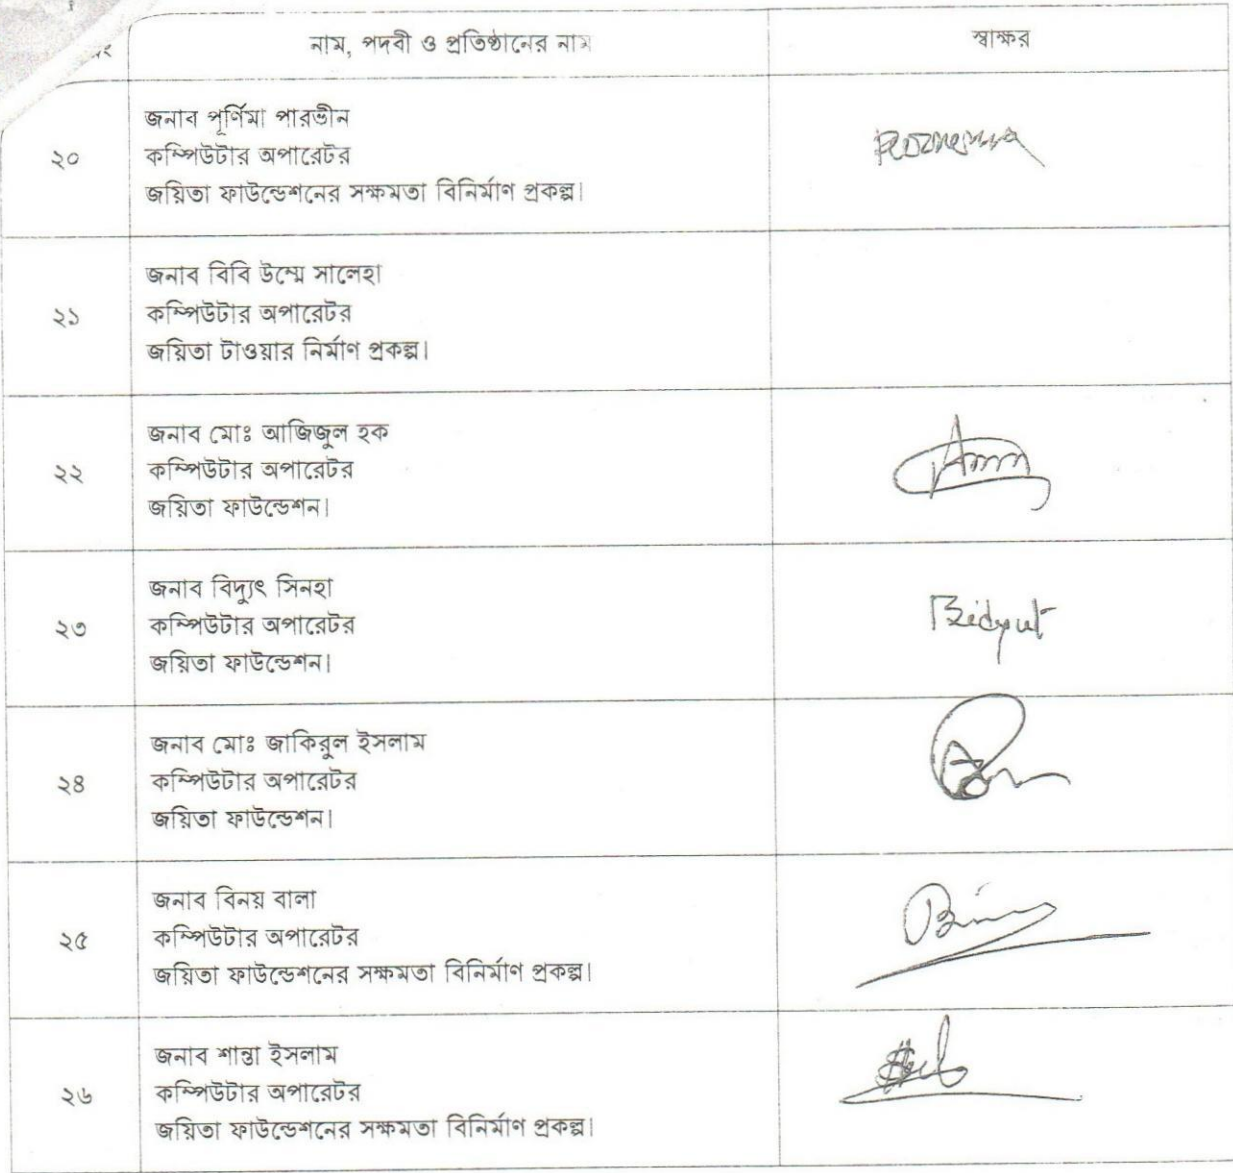 নং নাম, পদবী ও প্রতিষ্ঠানের নাম স্বাক্ষর
২০
জনাব পূর্ণিমা পারভীন
কম্পিউটার অপারেটর
জয়িতা ফাউন্ডেশনের সক্ষমতা বিনির্মাণ প্রকল্প।
২১
জনাব বিবি উম্মে সালেহা
কম্পিউটার অপারেটর
জয়িতা টাওয়ার নির্মাণ প্রকল্প।
২২
জনাব মোঃ আজিজুল হক
কম্পিউটার অপারেটর
জয়িতা ফাউন্ডেশন।
২৩
জনাব বিদ্যুৎ সিনহা
কম্পিউটার অপারেটর
জয়িতা ফাউন্ডেশন।
Bidyut
২৪
জনাব মোঃ জাকিরুল ইসলাম
কম্পিউটার অপারেটর
জয়িতা ফাউন্ডেশন।
২৫
জনাব বিনয় বালা
কম্পিউটার অপারেটর
জয়িতা ফাউন্ডেশনের সক্ষমতা বিনির্মাণ প্রকল্প।
২৬
জনাব শান্তা ইসলাম
কম্পিউটার অপারেটর
জয়িতা ফাউন্ডেশনের সক্ষমতা বিনির্মাণ প্রকল্প।